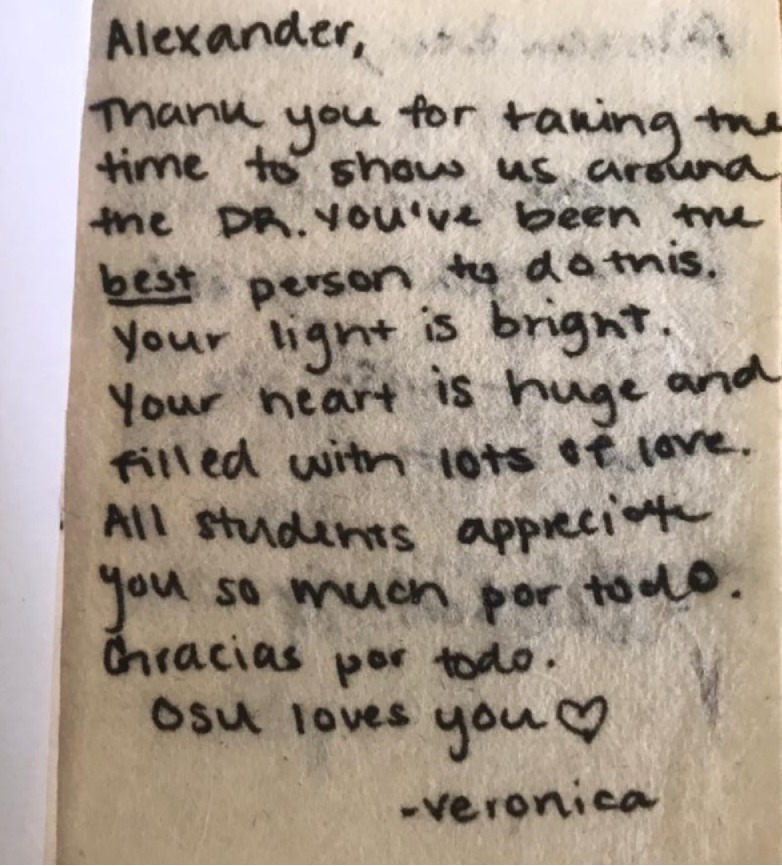 Alexander,
Thank you for taking the
time to show us around
the DR. You've been the
best person to do this.
Your light is bright.
Your heart is huge and
filled with lots of love.
All students appreciate
you so much por todo.
Gracias por todo.
OSU loves you♡
-Veronica